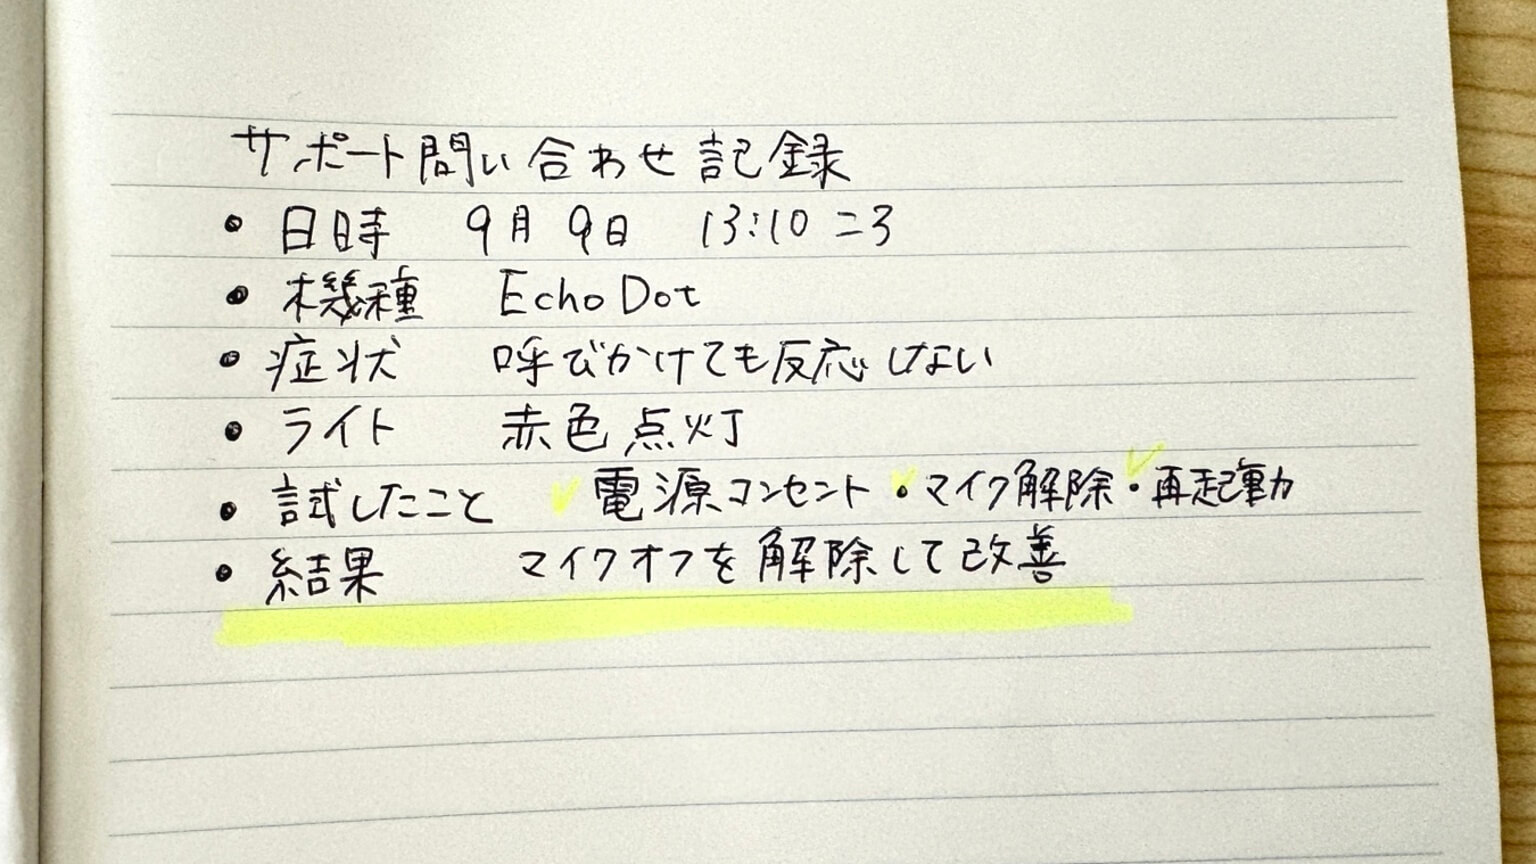 サポート問い合わせ記録
• 日時 9月9日 13:10ころ
• 機種 Echo Dot
• 症状 呼びかけても反応しない
• ライト 赤色点灯
• 試したこと ✓電源コンセント ✓・マイク解除 ✓・再起動
• 結果 マイクオフを解除して改善